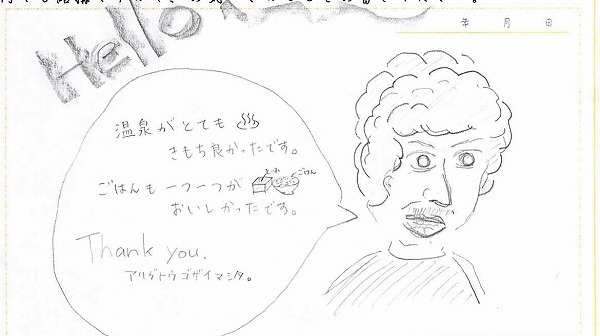 年 月 日
Hello
温泉がとても
きもち良かったです。
ごはんも一つ一つが
ごはん
おいしかったです。
Thank you.
アリガトウゴザイマシタ。